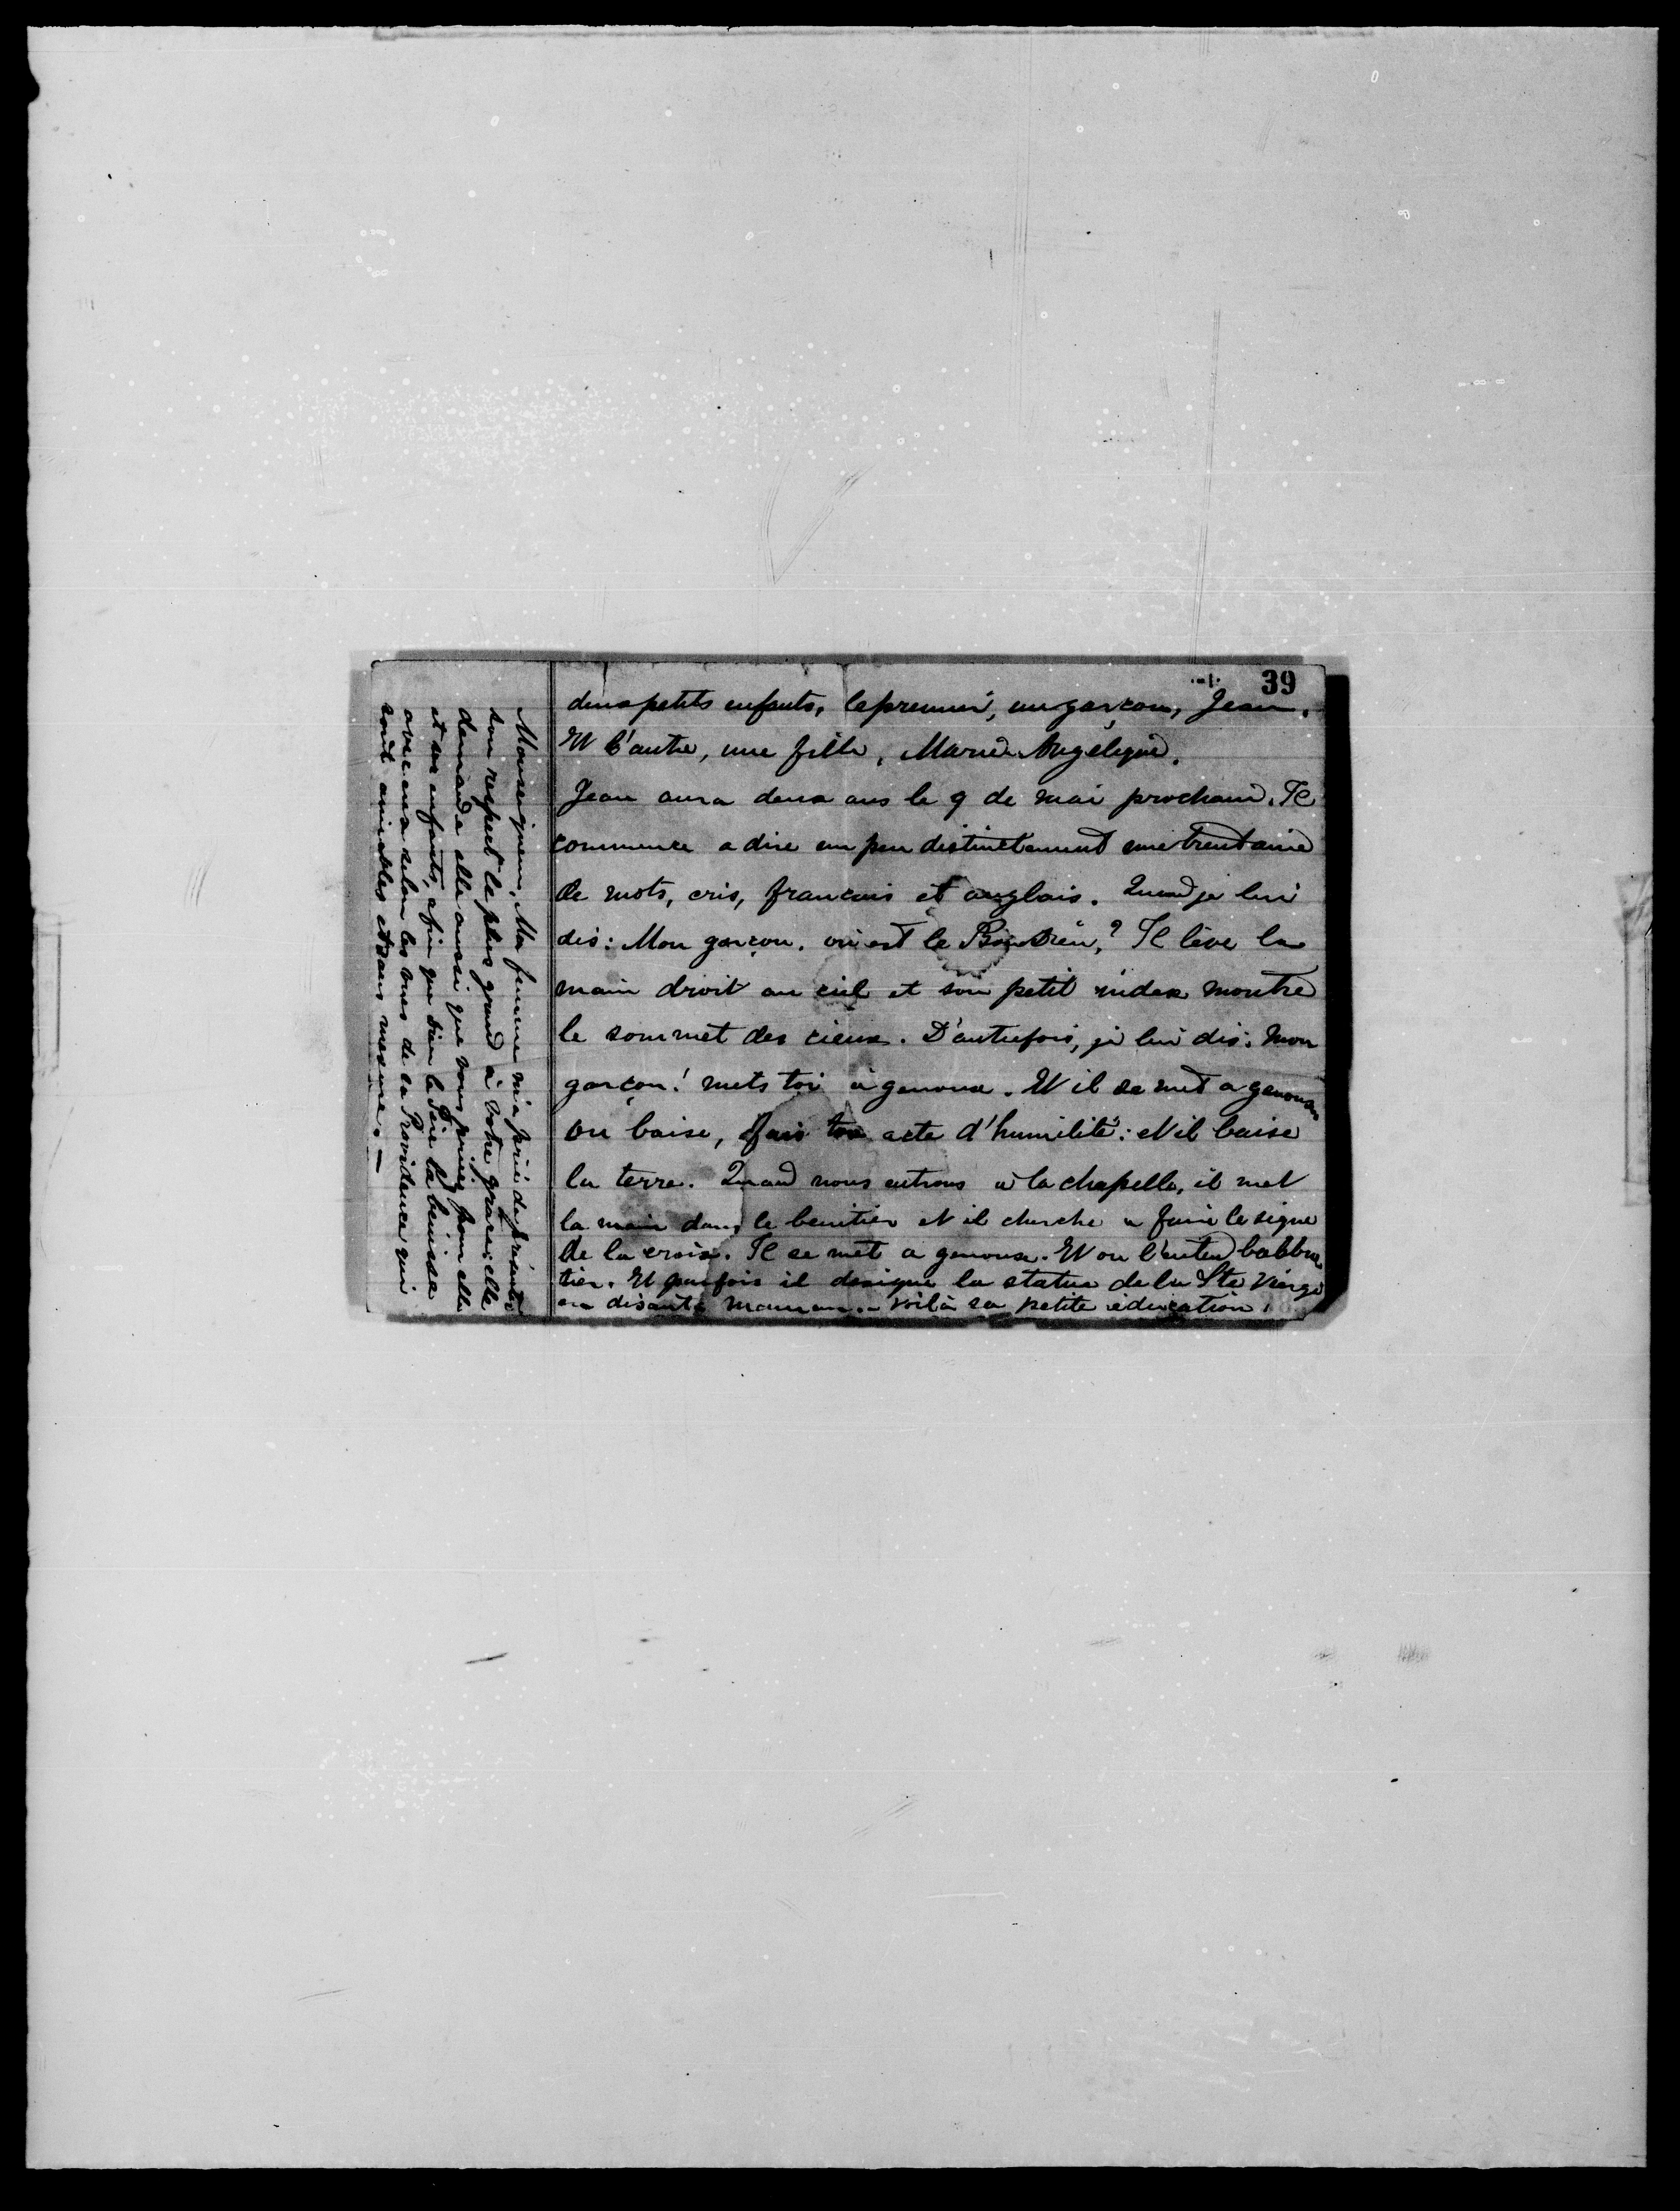 39
deux petits enfants, le premier, un garçon, Jean.
Et l'autre, une fille, Marie Angelique.
Jean aura deux ans le 9 de mai prochain. Il
commence a dire un peu distinctement une trentaine
de mots, cris, francais et anglais. Quand je lui
dis: Mon garçon. où est le Bon Dieu? Il lève la
main droit au ciel et son petit index montre
le sommet des cieux. D'autrefois, je lui dis: mon
garçon! mets toi à genoux. Et il se met a genoux
ou baise, fais ton acte d'humilité: et il baise
la terre. Quand nous entrons à la chapelle, il met
la main dans le benitier et il cherche a faire le signe
de la croix. Il se met a genoux. Et on l'entend balbu
tier. Et parfois il designe la statue de la Ste Vierge
en disant: maman. - voilà sa petite éducation.
Monseigneur, Ma femme m'a prié de présenter
son respect le plus grand à votre grace: elle
demande elle aussi que vous priiez pour elle
et ses enfants, afin que Dieu le Père la bénisse
avec eux selon les vues de la Providence qui
sont aimables et sans mesure. —